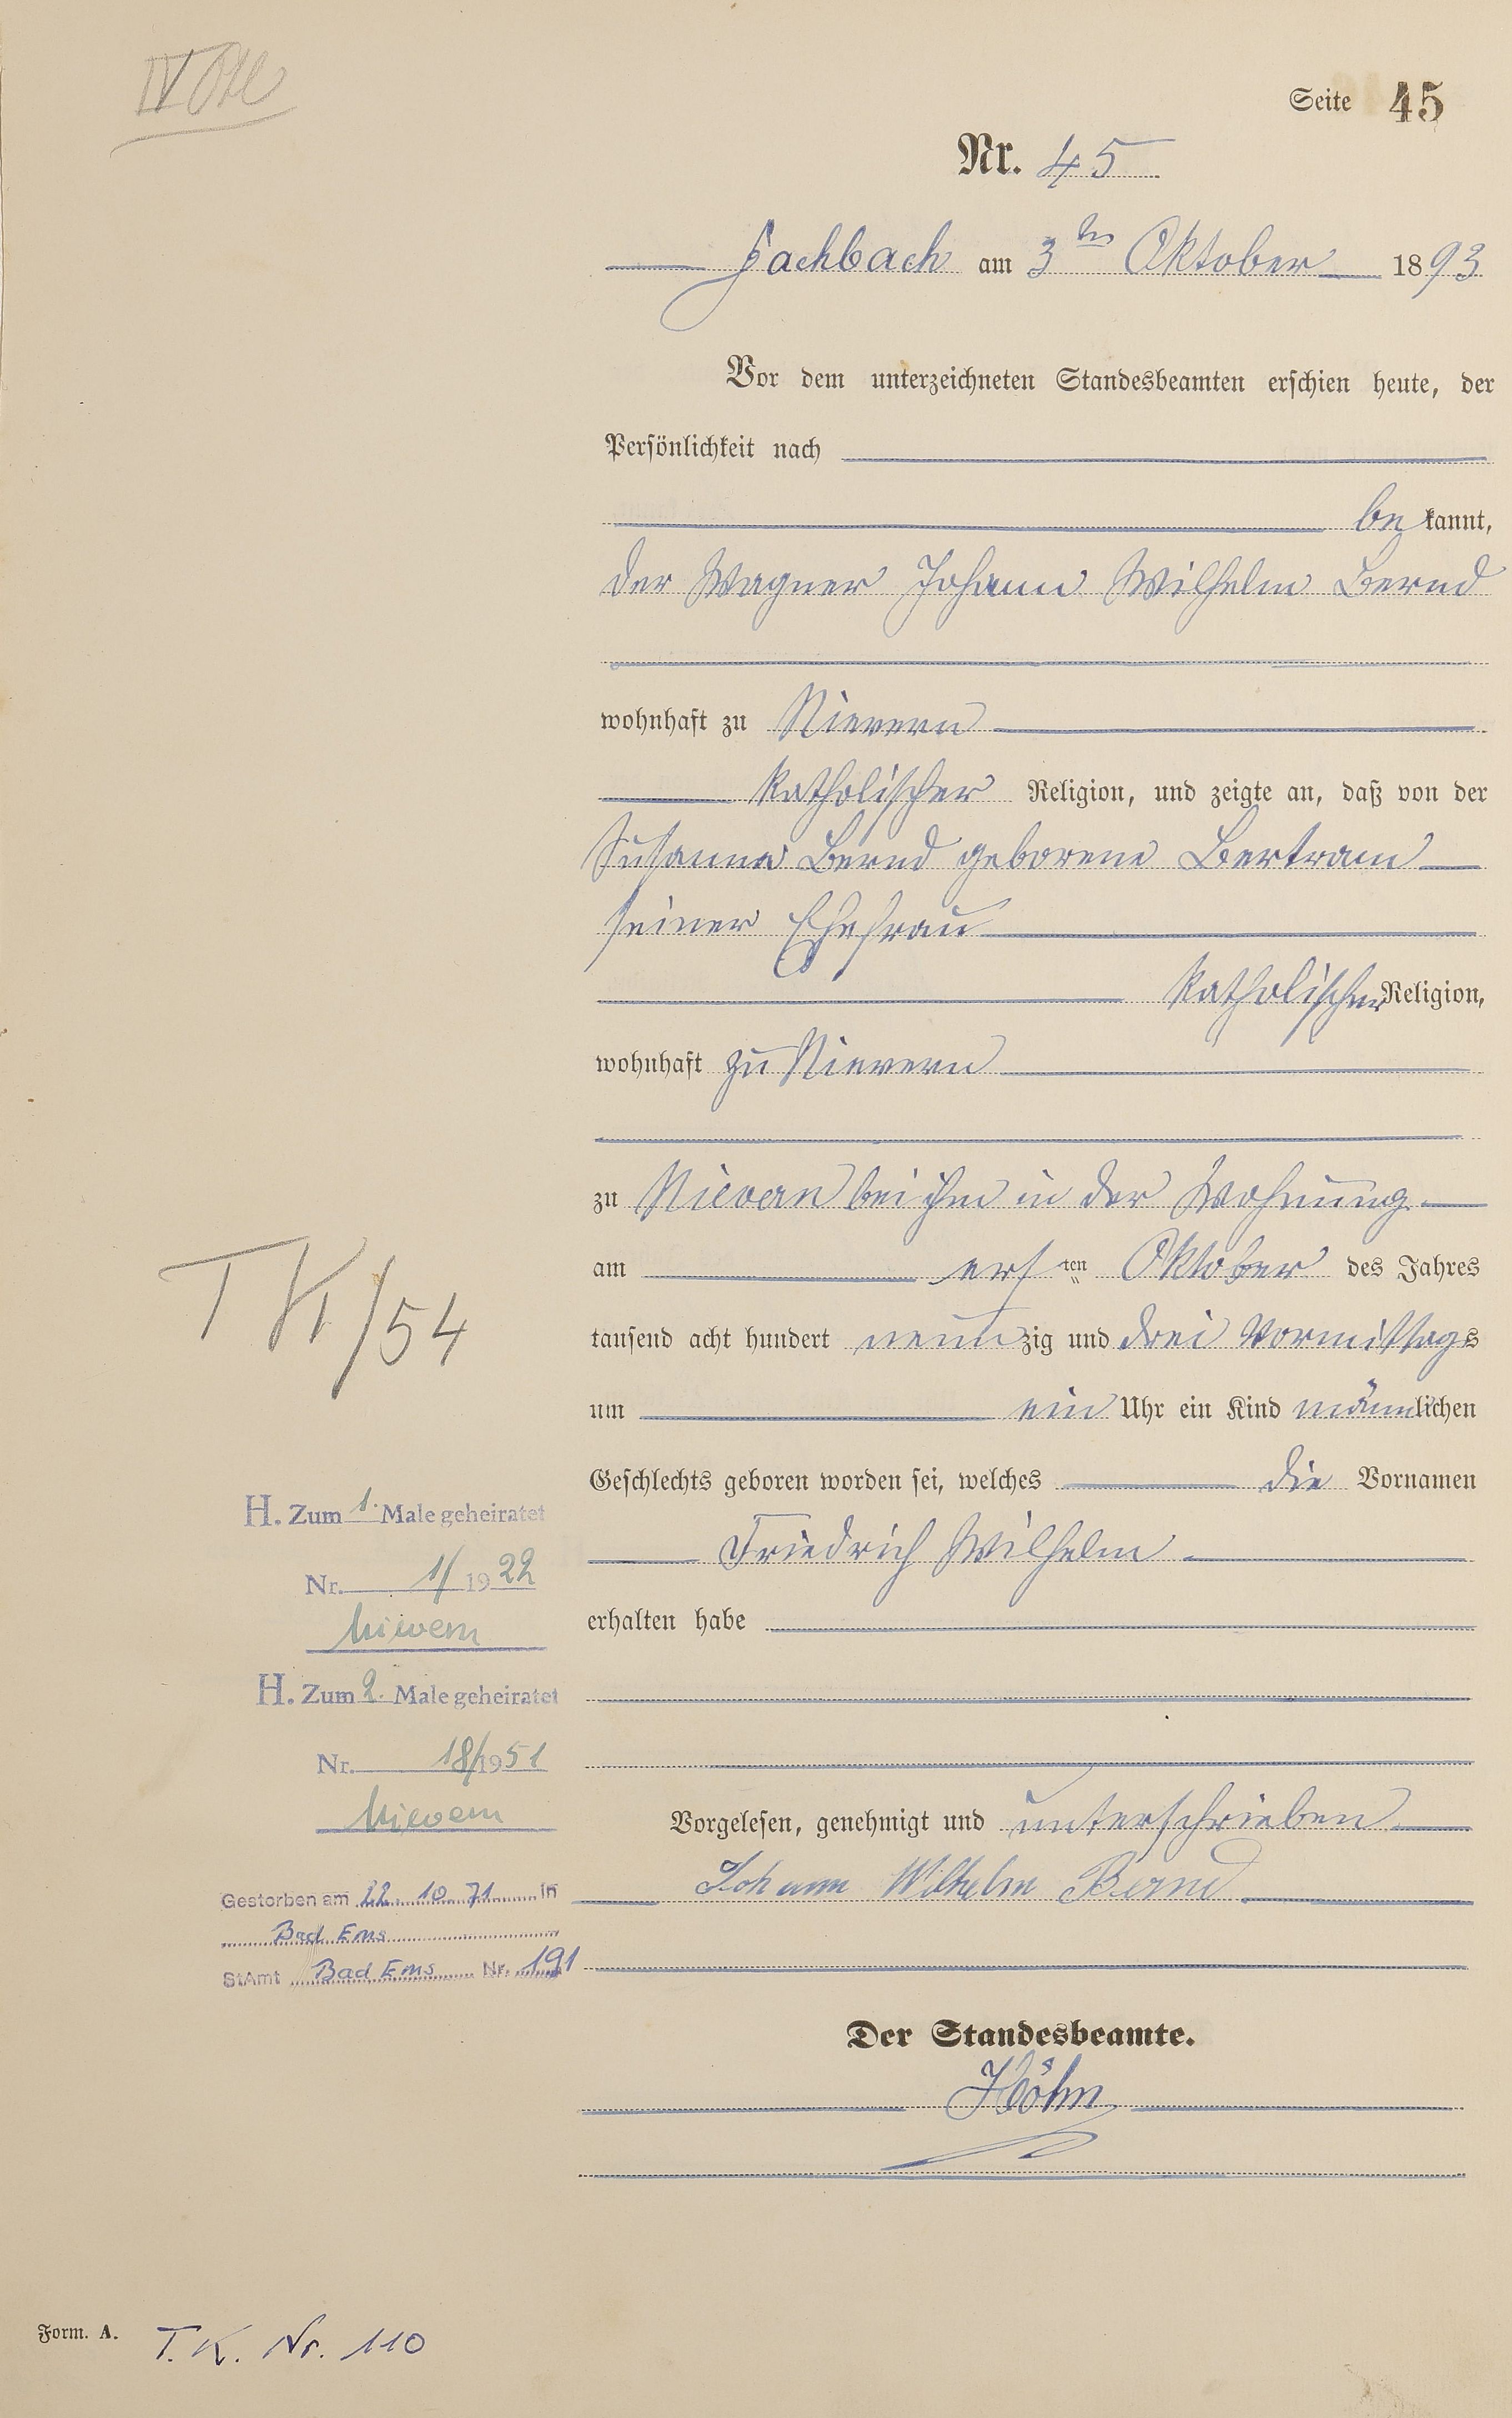 Seite 45
Nr. 45
Fachbach am 3ten Oktober 1893
Vor dem unterzeichneten Standesbeamten erschien heute, der
Persönlichkeit nach
bekannt,
der Wagner Johann Wilhelm Bernd
wohnhaft zu Nievern
katholischer Religion, und zeigte an, daß von der
Susanna Bernd geborene Bertram
seiner Ehefrau
katholischer Religion,
wohnhaft zu Nievern
zu Nievern bei ihm in der Wohnung
am ersten Oktober des Jahres
tausend acht hundert neunzig und drei Vormittags
um ein Uhr ein Kind männlichen
Geschlechts geboren worden sei, welches die Vornamen
Friedrich Wilhelm
erhalten habe
Vorgelesen, genehmigt und unterschrieben
Johann Wilhelm Bernd
Der Standesbeamte.
Höhn
T K/54
H. Zum 1. Male geheiratet
Nr. 1/1922
Nievern
H. Zum 2. Male geheiratet
Nr. 18/1951
Nievern
Gestorben am 22.10.71 in
Bad Ems
StAmt Bad Ems Nr. 191
Form. A. T.K. Nr. 110